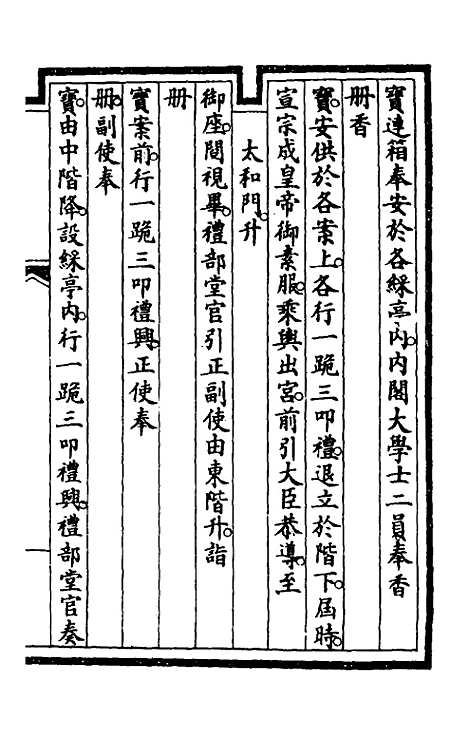 寶連箱奉安於各綵亭內。內閣大學士二員奉香
冊香
寶。安供於各案上。各行一跪三叩禮。退立於階下。屆時。
宣宗成皇帝御素服。乘輿出宮。前引大臣恭導。至
太和門。升
御座。閱視畢。禮部堂官引正副使由東階升。詣
冊
寶案前。行一跪三叩禮。興。正使奉
冊。副使奉
寶。由中階降。設綵亭內。行一跪三叩禮。興。禮部堂官奏